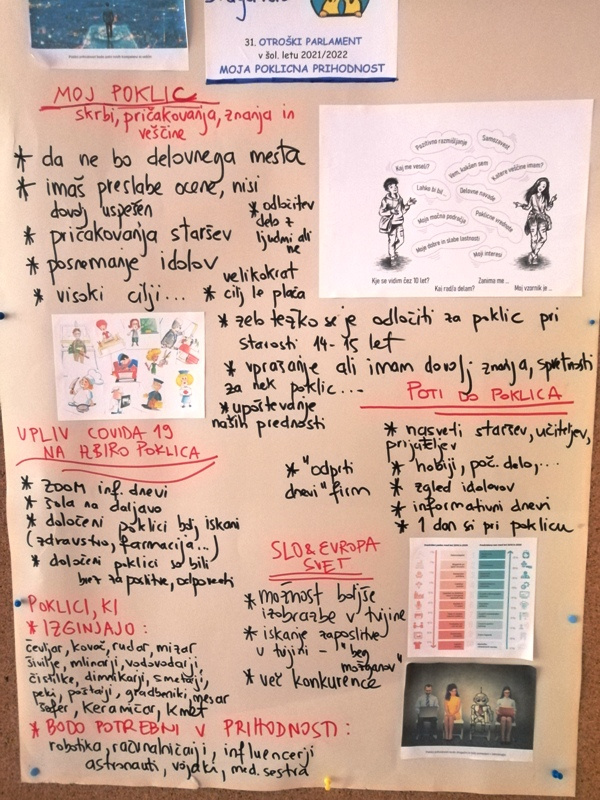 31. OTROŠKI PARLAMENT
v šol. letu 2021/2022
MOJA POKLICNA PRIHODNOST
MOJ POKLIC
skrbi, pričakovanja, znanja in
veščine
* da ne bo delovnega mesta
* imaš preslabe ocene, nisi
dovolj uspešen
* pričakovanja staršev
* posnemanje idolov
* visoki cilji...
* odločitev
delo z
ljudmi ali
ne
velikokrat
* cilj le plača
* zelo težko se je odločiti za poklic pri
starosti 14-15 let
* vprašanje ali imam dovolj znanja, spretnosti
za nek poklic...
* upoštevanje
naših prednosti
Pozitivno razmišljanje
Samozavest
Kaj me veseli?
Vem, kakšen sem
Katere veščine imam?
Lahko bi bil...
Delovne navade
Moja močna področja
Poklicne vrednote
Moje dobre in slabe lastnosti
Moji interesi
Kje se vidim čez 10 let?
Zanima me ...
Kaj rad/a delam?
Moj vzornik je ...
POTI DO POKLICA
* nasveti staršev, učiteljev,
prijateljev
* hobiji, poč. delo,...
* zgled idolov
* informativni dnevi
* 1 dan si pri poklicu
* "odprti
dnevi" firm
UPLIV COVIDA 19
NA IZBIRO POKLICA
* ZOOM inf. dnevi
* šola na daljavo
* določeni poklici bolj iskani
(zdravstvo, farmacija...)
* določeni poklici so bili
brez zaposlitve, odpovedi
SLO & EVROPA
SVET
* možnost boljše
izobrazbe v tujine
* iskanje zaposlitve
v tujini - "beg
možganov"
* več konkurence
POKLICI, KI
* IZGINJAJO:
čevljar, kovač, rudar, mizar
šivilje, mlinarji, vodovodarji,
čistilke, dimnikarji, smetarji,
peki, poštarji, gradbeniki, mesar
šofer, keramičar, kmet
* BODO POTREBNI V PRIHODNOSTI:
robotika, računalničarji, influencerji
astronauti, vojaki, med. sestra